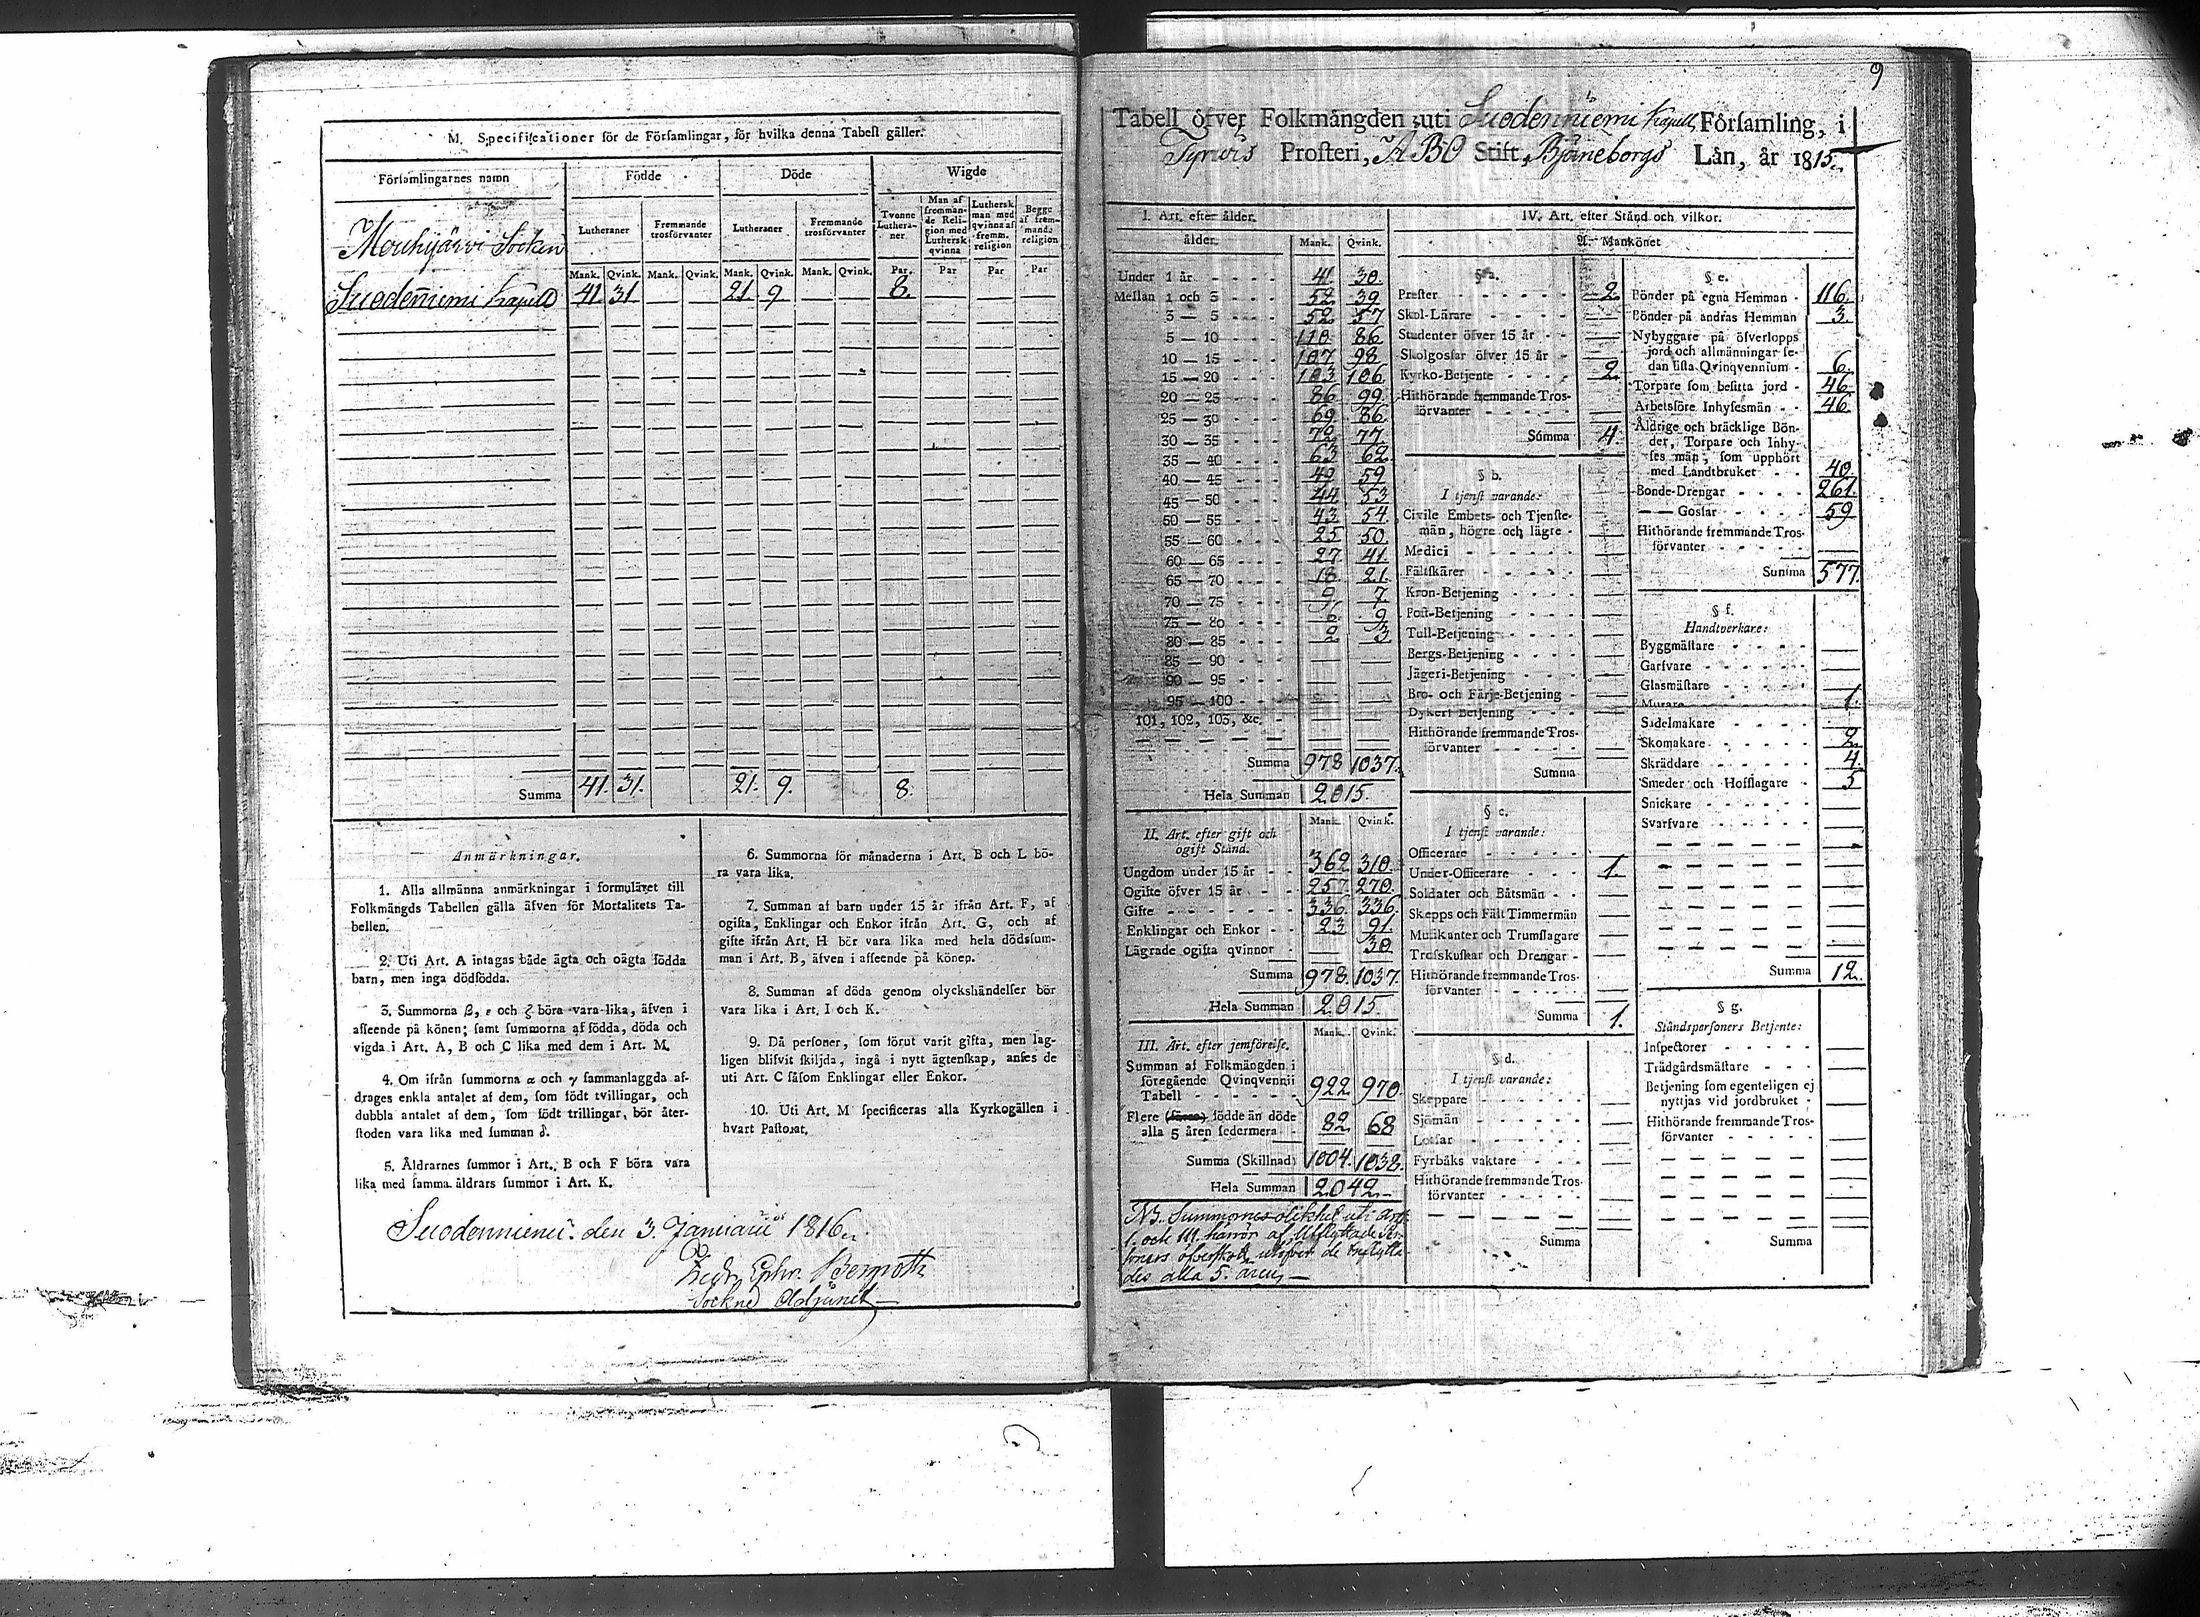 M. Specificationer för de Församlingar, för hvilka denna Tabell gäller.
Församlingarnes namn Födde Döde Wigde
Lutheraner Fremmande trosförvanter Lutheraner Fremmande trosförvanter Tvenne Lutheraner Man af fremmande Religion med Luthersk qvinna Luthersk man med qvinna af fremm. religion Begge af fremmande religion
Mank. Qvink. Mank. Qvink. Mank. Qvink. Mank. Qvink. Par. Par Par Par
Mouhijärvi Socken
Suodeniemi Kapell 41 31 — — 21 9 — — 8. — — —
Summa 41. 31. 21. 9. 8.
Anmärkningar.
1. Alla allmänna anmärkningar i formuläret till
Folkmängds Tabellen gälla äfven för Mortalitets Ta-
bellen.
2. Uti Art. A intagas både ägta och oägta födda
barn, men inga dödfödda.
3. Summorna β, ε och ζ böra vara lika, äfven i
afseende på könen; samt summorna af födda, döda och
vigda i Art. A, B och C lika med dem i Art. M.
4. Om ifrån summorna α och γ sammanlaggda af-
drages enkla antalet af dem, som födt tvillingar, och
dubbla antalet af dem, som födt trillingar, bör åter-
stoden vara lika med summan δ.
5. Åldrarnes summor i Art. B och F böra vara
lika med samma åldrars summor i Art. K.
6. Summorna för månaderna i Art. B och L bö-
ra vara lika.
7. Summan af barn under 15 år ifrån Art. F, af
ogifta, Enklingar och Enkor ifrån Art. G, och af
gifte ifrån Art. H bör vara lika med hela dödssum-
man i Art. B, äfven i afseende på könen.
8. Summan af döda genom olyckshändelser bör
vara lika i Art. I och K.
9. Då personer, som förut varit gifta, men lag-
ligen blifvit skiljda, ingå i nytt ägtenskap, anses de
uti Art. C såsom Enklingar eller Enkor.
10. Uti Art. M specificeras alla Kyrkogällen i
hvart Pastorat.
Suodenniemi den 3. Januarii 1816.
Fredr Ephr. Bergroth
Sockne Adjunct
9
Tabell öfver Folkmängden uti Suodenniemi Kapell Församling, i
Tyrvis Prosteri, ABO Stift, Björneborgs Län, år 1815.
I. Art. efter ålder.
ålder. Mank. Qvink.
Under 1 år 41 30.
Mellan 1 och 3 52 39
3 — 5 52 57
5 — 10 110 86
10 — 15 107 98
15 — 20 103 106
20 — 25 86 99
25 — 30 69 86
30 — 35 72 77
35 — 40 63 62
40 — 45 49 59
45 — 50 44 53
50 — 55 43 54
55 — 60 25 50
60 — 65 27 41
65 — 70 18 21
70 — 75 9 7
75 — 80 6 9
80 — 85 2 3
85 — 90 — —
90 — 95 — —
95 — 100 — —
101, 102, 103, &c. — —
Summa 978 1037.
Hela Summan 2015.
II. Art. efter gift och
ogift Stånd. Mank. Qvink.
Ungdom under 15 år 362 310.
Ogifte öfver 15 år 257 270.
Gifte 336 336
Enklingar och Enkor 23 91.
Lägrade ogifta qvinnor — 30
Summa 978. 1037
Hela Summan 2015.
III. Art. efter jemförelse. Mank. Qvink.
Summan af Folkmängden i
föregående Qvinqvennii
Tabell 922 970
Flere födde än döde
alla 5 åren sedermera 82 68
Summa (Skillnad) 1004. 1038.
Hela Summan 2042.
NB. Summornes olikhet uti Art.
1. och III. härrör af Utflyttade Per-
soners öfverskott utöfver de Inflytta-
des alla 5. åren. —
IV. Art. efter Stånd och vilkor.
A. Mankönet
§ a.
Prester 2.
Skol-Lärare —
Studenter öfver 15 år —
Skolgossar öfver 15 år —
Kyrko-Betjente 2.
Hithörande fremmande Tros-
förvanter —
Summa 4.
§ b.
I tjenst varande:
Civile Embets- och Tjenste-
män, högre och lägre —
Medici —
Fältskärer —
Kron-Betjening —
Post-Betjening —
Tull-Betjening —
Bergs-Betjening —
Jägeri-Betjening —
Bro- och Färje-Betjening —
Dykeri Betjening —
Hithörande fremmande Tros-
förvanter —
Summa
§ c.
I tjenst varande:
Officerare —
Under-Officerare 1.
Soldater och Båtsmän —
Skepps och Fält Timmermän —
Musikanter och Trumslagare —
Trosskuskar och Drengar —
Hithörande fremmande Tros-
förvanter —
Summa 1.
§ d.
I tjenst varande:
Skeppare —
Sjömän —
Lotsar —
Fyrbåks vaktare —
Hithörande fremmande Tros-
förvanter —
Summa
§ e.
Bönder på egna Hemman 116.
Bönder på andras Hemman 3.
Nybyggare på öfverlopps
jord och allmänningar se-
dan sista Qvinqvennium 6.
Torpare som besitta jord 46
Arbetsföre Inhysesmän 46
Åldrige och bräcklige Bön-
der, Torpare och Inhy-
ses män, som upphört
med Landtbruket 40.
Bonde-Drengar 261.
— — Gossar 59
Hithörande fremmande Tros-
förvanter —
Summa 577.
§ f.
Handtverkare:
Byggmästare —
Garfvare —
Glasmästare —
Murare 1.
Sadelmakare —
Skomakare 2
Skräddare 4.
Smeder och Hofslagare 5
Snickare —
Svarfvare —
Summa 12.
§ g.
Ståndspersoners Betjente:
Inspectorer —
Trädgårdsmästare —
Betjening som egenteligen ej
nyttjas vid jordbruket —
Hithörande fremmande Tros-
förvanter —
Summa